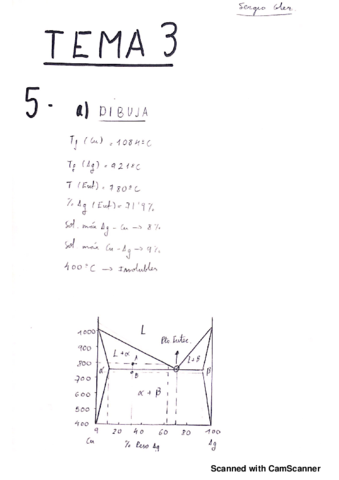 Sergio
TEMA 3
5- a) DIBUJA
Tf (Cu) = 1084ºC
Tf (Ag) = 921ºC
T (Eut) = 780ºC
% Ag (Eut) = 71'9%
Sol. máx Ag-Cu → 8%
Sol. máx Cu-Ag → 9%
400ºC → Insolubles
1000
900
800
700
600
500
400
L
Pto Eutec.
L+α
A
L+β
α
B
β
α+β
20 40 60 80 100
Cu % Peso Ag Ag
Scanned with CamScanner